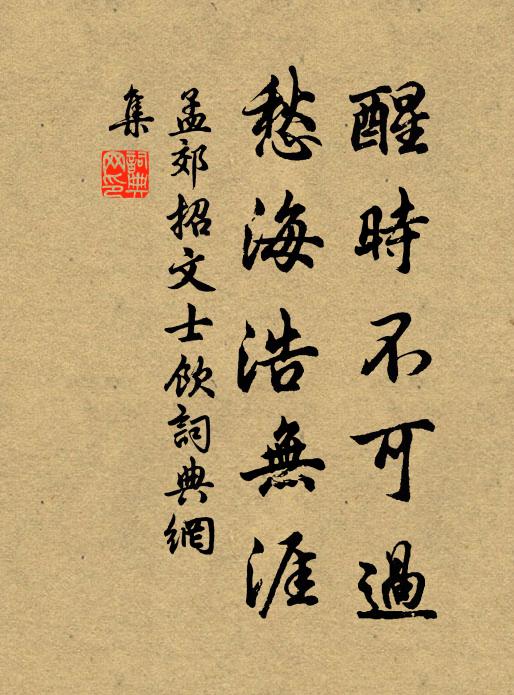 醒時不可過
愁海浩無涯
孟郊招文士飲詞典網
集
詞典
网印